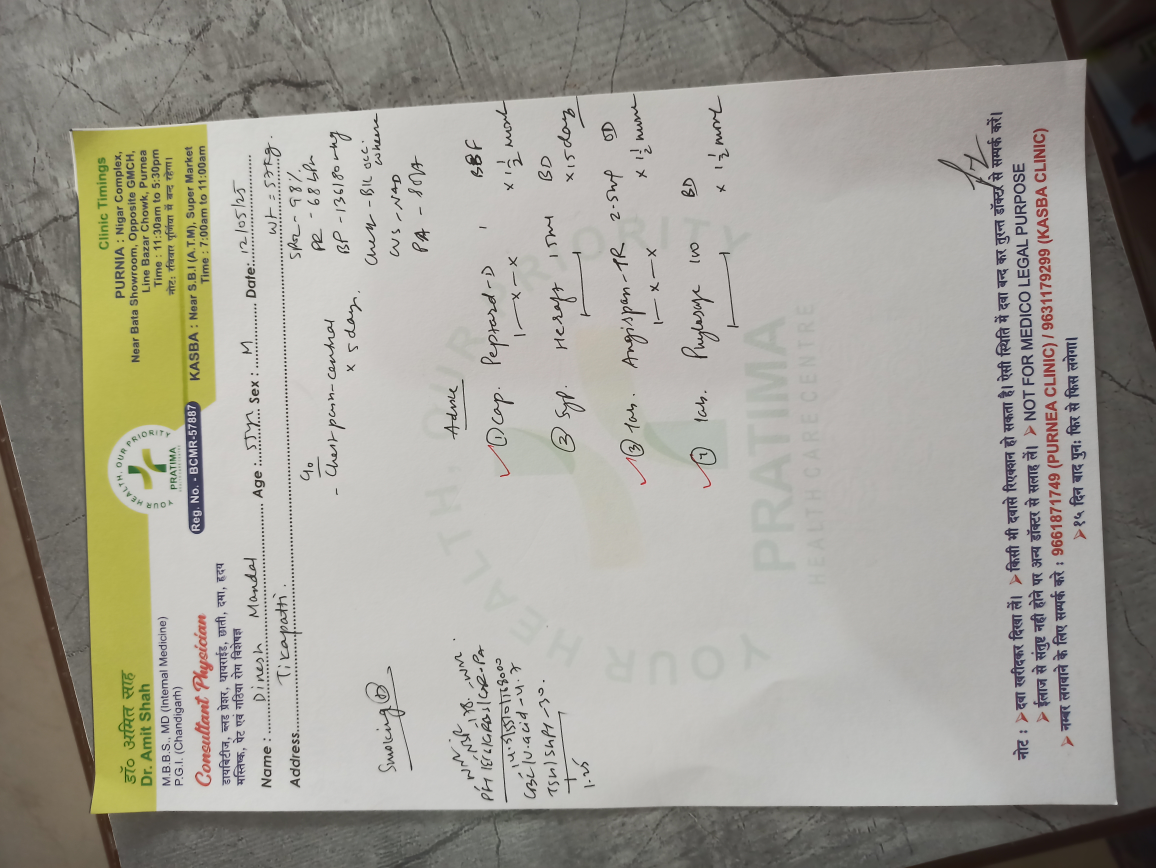 डॉ० अमित साह
Dr. Amit Shah
M.B.B.S., MD (Internal Medicine)
P.G.I. (Chandigarh)
Consultant Physician
डायबिटीज, ब्लड प्रेशर, थायराईड, छाती, दमा, हृदय
मस्तिष्क, पेट एवं गठिया रोग विशेषज्ञ
YOUR HEALTH, OUR PRIORITY
PRATIMA
Reg. No. - BCMR-57887
Clinic Timings
PURNIA : Nigar Complex,
Near Bata Showroom, Opposite GMCH,
Line Bazar Chowk, Purnea
Time : 11:30am to 5:30pm
नोट: रविवार पूर्णिया में बन्द रहेगा।
KASBA : Near S.B.I (A.T.M), Super Market
Time : 7:00am to 11:00am
Name : Dinesh Mandal Age : 55yr Sex : M Date: 12/05/25
Address Tikapatti. wt = 57kg.
C/o
- Chest pain-central
x 5 day.
SPO2 - 98%
PR - 68 bpm
BP - 136/80 mmHg
Chest - B/L occ.
wheeze
CVS - NAD
PA - soft
Smoking
Advice
① Cap. Peptard-D 1 BBF
1-x-x x 1½ month
② Syp. 15ml BD
x 15 days
③ Tab. Angispan-TR 2.5mg OD
1-x-x x 1½ month
④ Tab. 100 BD
x 1½ month
TSH / SGPT - 30.
1.25
YOUR HEALTH, OUR PRIORITY
PRATIMA
HEALTHCARE CENTRE
नोट : ➤ दवा खरीदकर दिखा लें। ➤ किसी भी दवासे रिएक्शन हो सकता है। ऐसी स्थिति में दवा बन्द कर तुरन्त डॉक्टर से सम्पर्क करें।
➤ ईलाज से संतुष्ट नही होने पर अन्य डॉक्टर से सलाह लें। ➤ NOT FOR MEDICO LEGAL PURPOSE
➤ नम्बर लगवाने के लिए सम्पर्क करे : 9661871749 (PURNEA CLINIC) / 9631179299 (KASBA CLINIC)
➤ १५ दिन बाद पुनः फिर से फिस लगेगा।